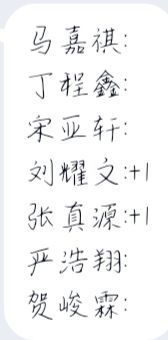 马嘉祺:
丁程鑫:
宋亚轩:
刘耀文:+1
张真源:+1
严浩翔:
贺峻霖: